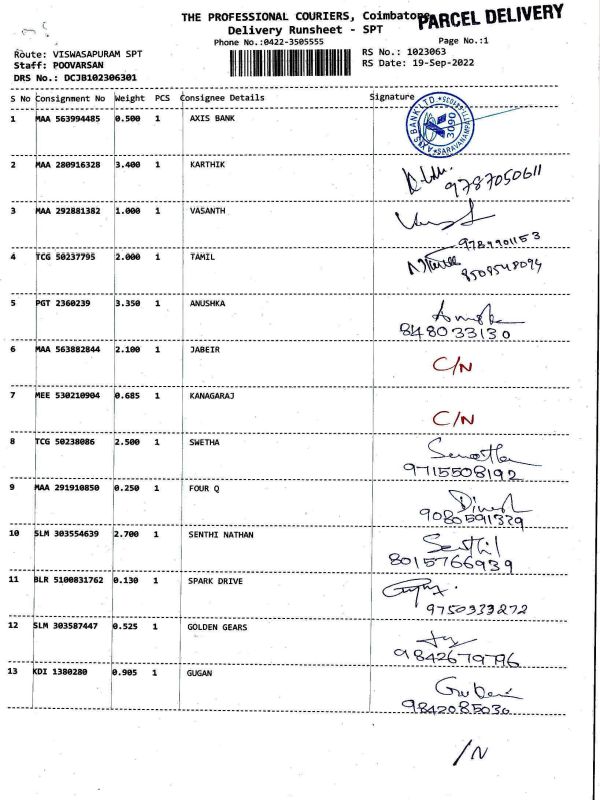 THE PROFESSIONAL COURIERS, Coimbatore
PARCEL DELIVERY
Delivery Runsheet - SPT
Phone No.:0422-3505555
Page No.:1
Route: VISWASAPURAM SPT
RS No.: 1023063
Staff: POOVARSAN
RS Date: 19-Sep-2022
DRS No.: DCJB102306301
S No Consignment No Weight PCS Consignee Details Signature
1 MAA 563994485 0.500 1 AXIS BANK
AXIS BANK LTD. 3090
2 MAA 280916328 3.400 1 KARTHIK
9787050611
3 MAA 292881382 1.000 1 VASANTH
9789901153
4 TCG 50237795 2.000 1 TAMIL
9509548094
5 PGT 2360239 3.350 1 ANUSHKA
848033130
6 MAA 563882844 2.100 1 JABEIR
C/N
7 MEE 530210904 0.685 1 KANAGARAJ
C/N
8 TCG 50238086 2.500 1 SWETHA
9715508192
9 MAA 291910850 0.250 1 FOUR Q
Dinesh
9080591339
10 SLM 303554639 2.700 1 SENTHI NATHAN
Senthil
8015766939
11 BLR 5100831762 0.130 1 SPARK DRIVE
9750939272
12 SLM 303587447 0.525 1 GOLDEN GEARS
9842679796
13 KDI 1380280 0.905 1 GUGAN
9842085030
/N